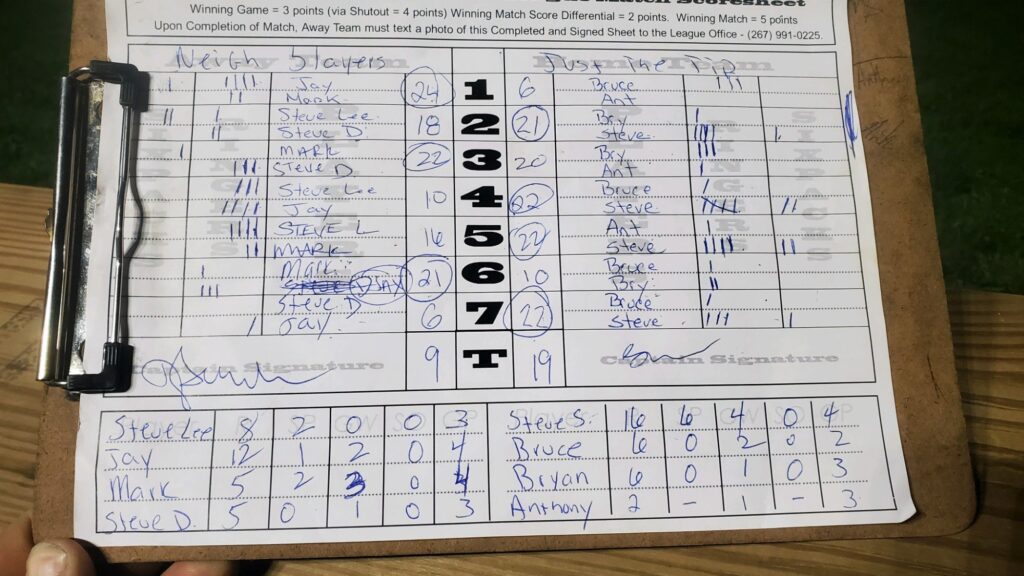 Match Scoresheet
Winning Game = 3 points (via Shutout = 4 points) Winning Match Score Differential = 2 points. Winning Match = 5 points
Upon Completion of Match, Away Team must text a photo of this Completed and Signed Sheet to the League Office - (267) 991-0225.
Neigh Slayers Just The Tip
| |||| Jay 24 1 6 Bruce |||
|| Mark Ant
|| | Steve Lee 18 2 21 Bry |
|| Steve D. Steve |
| MARK 22 3 20 Bry |||
||| Steve D Ant |
||| Steve Lee 10 4 22 Bruce |
|||| Jay Steve ||
|||| STEVE L 16 5 22 Ant |
|| MARK Steve ||
| Mark 21 6 10 Bruce |
||| JAY Bry ||
Steve D 6 7 22 Bruce
| Jay Steve ||| |
9 T 19
Captain Signature Captain Signature
Steve Lee 8 2 0 0 3 Steve S. 16 6 4 0 4
Jay 12 1 2 0 4 Bruce 6 0 2 0 2
Mark 5 2 3 0 4 Bryan 6 0 1 0 3
Steve D. 5 0 1 0 3 Anthony 2 - 1 - 3